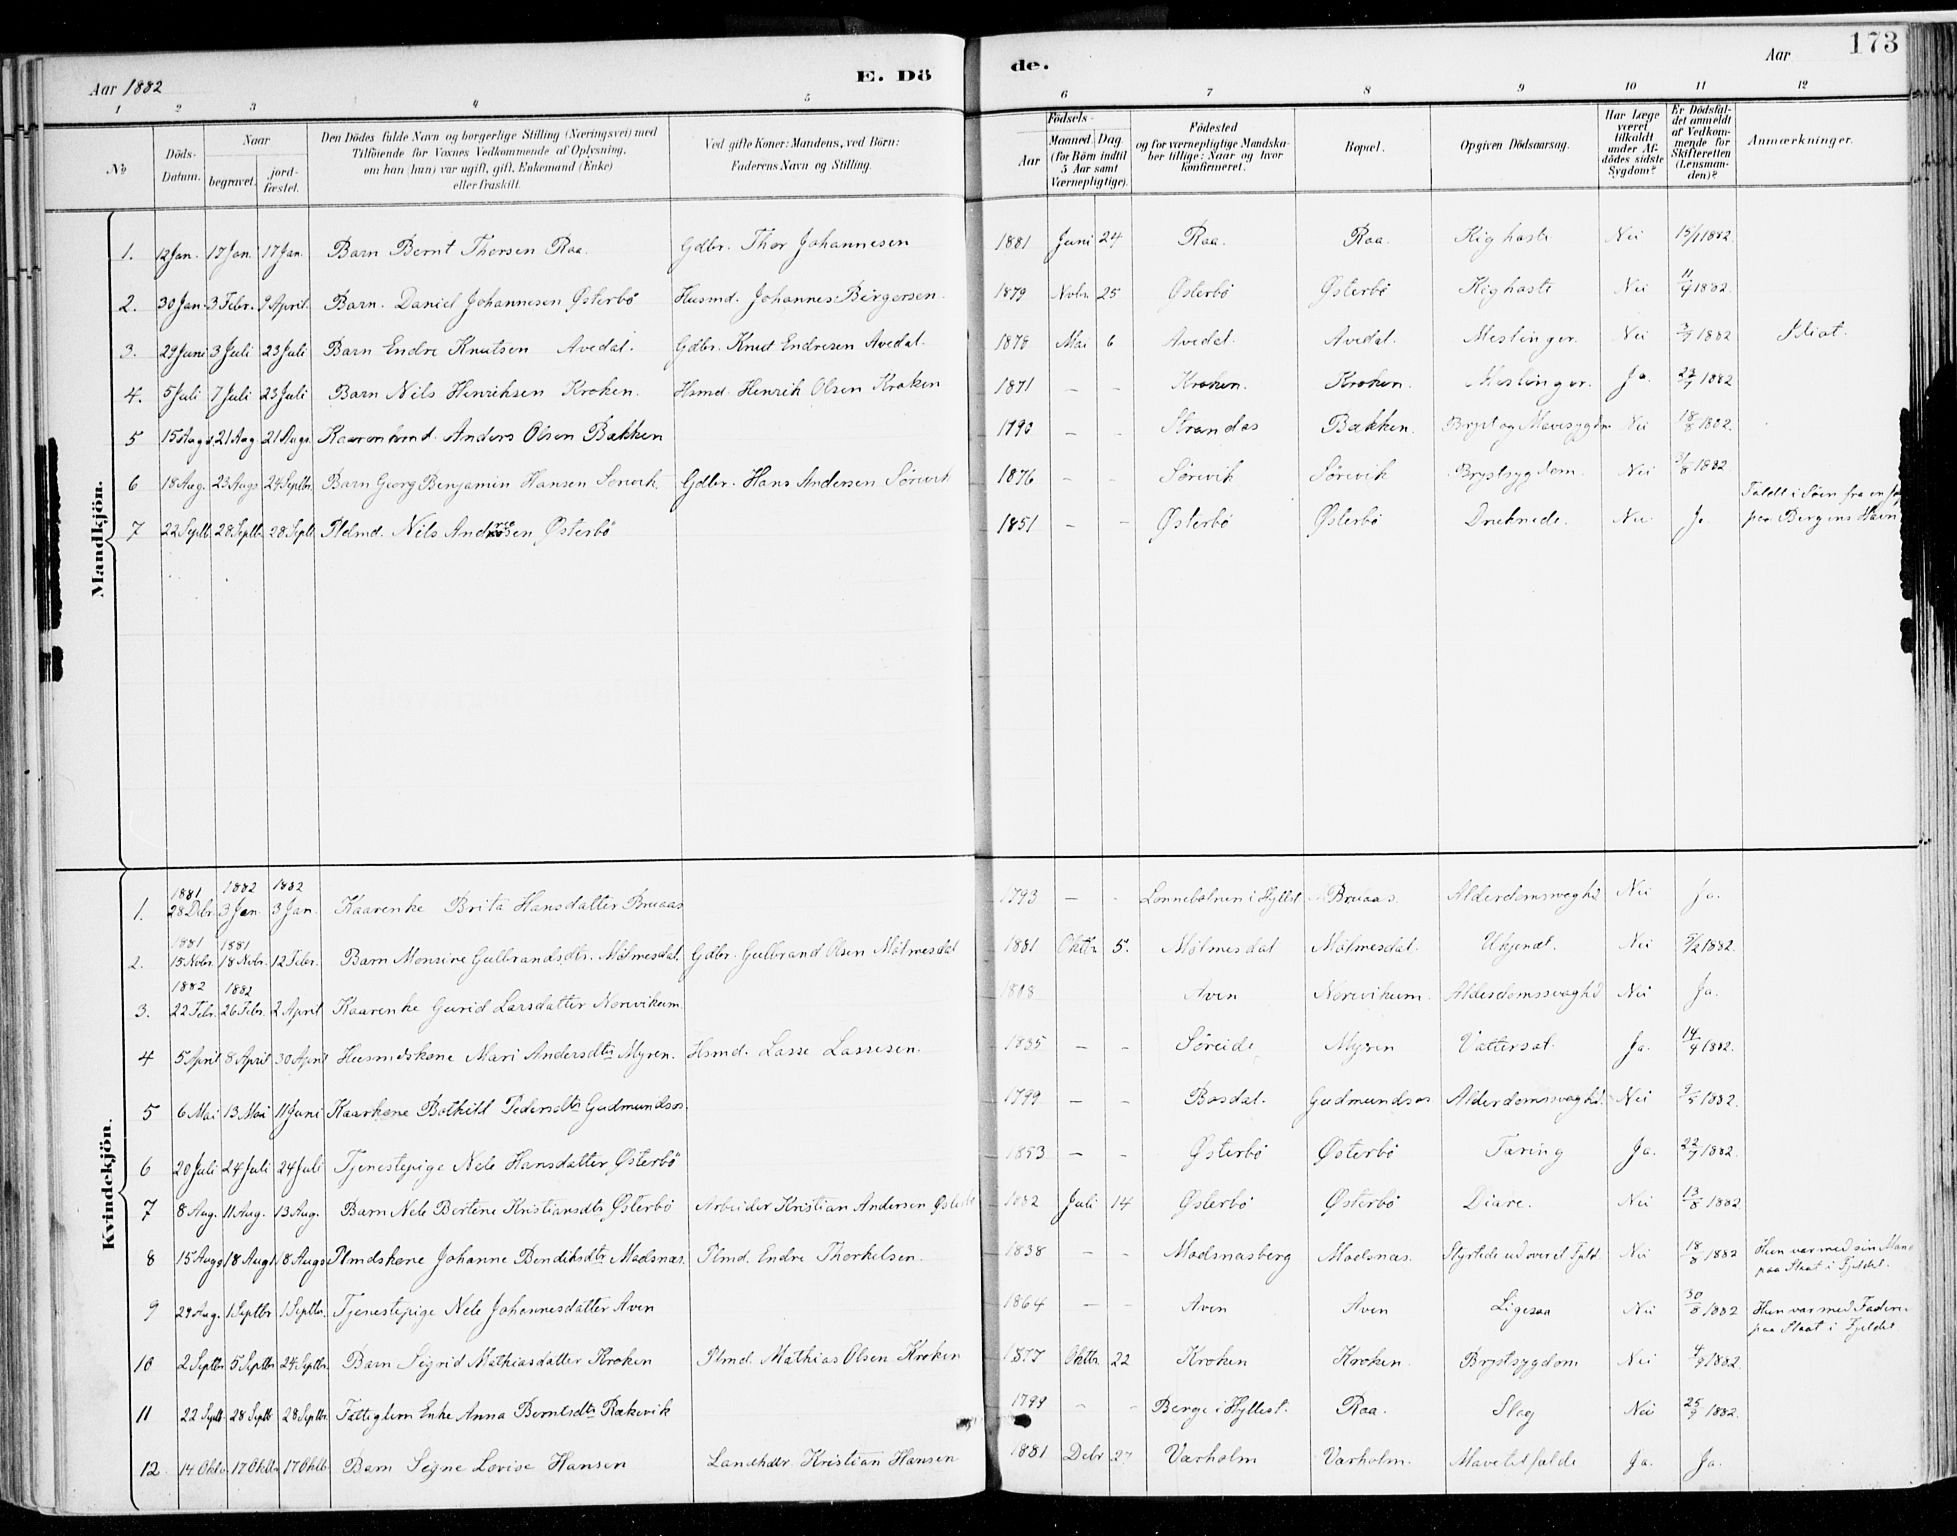 173
Aar 1882 E. Dö de. Aar
1 2 3 4 5 6 7 8 9 10 11 12
№ Döds-Datum. Naar begravet. jord-fæstet. Den Dödes fulde Navn og borgerlige Stilling (Næringsvei) med Tilföiende for Voxnes Vedkommende af Oplysning, om han (hun) var ugift, gift, Enkemand (Enke) eller fraskilt. Ved gifte Koner: Mandens, ved Börn: Faderens Navn og Stilling. Födsels- Aar Maaned Dag (for Börn indtil 5 Aar samt Værnepligtige). Födested og for værnepligtige Mandskaber tillige: Naar og hvor konfirmeret. Bopæl. Opgiven Dödsaarsag. Har Læge været tilkaldt under Afdödes sidste Sygdom? Er Dödsfaldet anmeldt af Vedkommende for Skifteretten (Lensmanden)? Anmærkninger.
Mandkjön.
1. 12 Jan. 17 Jan. 17 Jan. Barn Bernt Thorsen Raa. Gdbr. Thor Johannesen 1881 Juni 24 Raa. Raa. Kighoste Nei 13/1 1882.
2. 30 Jan. 3 Febr. 9 April. Barn. Daniel Johannesen Østerbö Husmd. Johannes Birgersen. 1879 Novbr. 25 Østerbö Østerbö Kighoste Nei 1882.
3. 29 Juni 3 Juli 23 Juli Barn Endre Knutsen Avedal. Gdbr. Knud Endresen Avedal. 1878 Mai 6 Avedal. Avedal. Meslinger. Nei 3/7 1882 Idiot.
4. 5 Juli 7 Juli 23 Juli Barn Nils Henriksen Kroken. Hsmd. Henrik Olsen Kroken 1871 – – Kroken. Kroken. Meslinger. Ja. 23/7 1882
5 15 Augs. 21 Aug. 21 Augs. Kaarenkmd. Anders Olsen Bakken 1790 – – Strandos Bakken. Bryst og Mavesygdm Nei 18/8 1882.
6 18 Aug. 23 Augs 24 Septbr. Barn Georg Benjamin Hansen Sörevik Gdbr. Hans Andersen Sörevik 1876 – – Sörevik Sörevik Brystsygdom. Nei 1882
7 22 Septb. 28 Septbr. 28 Septb. Pldmd. Nils Andresen Østerbö 1851 – – Østerbö Østerbö Druknede. Nei Ja Faldt i Söen fra en
paa Bergens Havn
Kvindekjön.
1881 1882 1882
1. 28 Debr. 3 Jan. 3 Jan. Kaarenke Brita Hansdatter Bruaas 1793 – – Lonnebotnen i Hyllest Bruaas. Alderdomssvaghd Nei Ja.
1881 1881
2. 15 Novbr. 18 Novbr. 12 Febr. Barn Monsine Gulbrandsdtr. Mölmesdal. Gdbr. Gulbrand Olsen Mölmesdal 1881 Oktbr 5. Mölmesdal Mölmesdal. Ukjendt. Nei 5/2 1882.
1882 1882
3. 22 Febr. 26 Febr. 2 April Kaarenke Gurid Larsdatter Norevikum. 1808 Aven Norevikum. Alderdomssvaghd Nei Ja.
4 5 April 8 April 30 April Husmdskone Mari Andersdtr Myren. Hsmd. Lasse Lassesen. 1835 – – Söreide Myren Vattersot. Ja. 14/4 1882.
5 6 Mai 13 Mai 11 Juni Kaarkone Bothild Pedersdtr Gudmundsos. 1799 – – Bosdal. Gudmundsos Alderdomssvaghd. Nei 9/5 1882.
6 20 Juli 24 Juli 24 Juli Tjenestepige Nele Hansdatter Østerbö 1853 – – Østerbö Østerbö Tæring Ja. 22/7 1882
7 8 Aug. 11 Aug. 13 Aug. Barn Nele Bertine Kristiansdtr Østerbö Arbeider Kristian Andersen 1882 Juli 14 Østerbö Østerbö Diare. Nei 13/8 1882
8 15 Augs 18 Augs 18 Augs Plmdskone Johanne Bendiksdtr. Madsnæs. Plmd. Endre Thorkelsen. 1838 – – Madsnæsberg Madsnæs. Styrtede ud over et Fjeld Nei 18/8 1882 Hun var med sin Mand
paa Slaat i Fjeldet.
9 29 Aug. 1 Septbr 1 Septbr. Tjenestepige Nele Johannesdatter Aven 1864 – – Aven Aven Ligesaa Nei 30/8 1882 Hun var med Faderen
paa Slaat i Fjeldet.
10 2 Septbr 5 Septbr 24 Septbr. Barn Sigrid Mathiasdatter Kroken Plmd. Mathias Olsen Kroken 1877 Oktbr. 22 Kroken Kroken. Brystsygdom Nei 4/9 1882.
11 22 Septb 28 Septb 28 Septbr. Fattiglem Enke Anna Berntsdtr Rækevik 1798 – – Berge i Hyllest. Raa. Slag Nei 25/9 1882.
12 14 Oktbr 17 Oktbr 17 Oktb. Barn Signe Lovise Hansen Landhdlr Kristian Hansen 1881 Debr 27 Varholm Varholm. Mavetilfælde Ja. Ja.